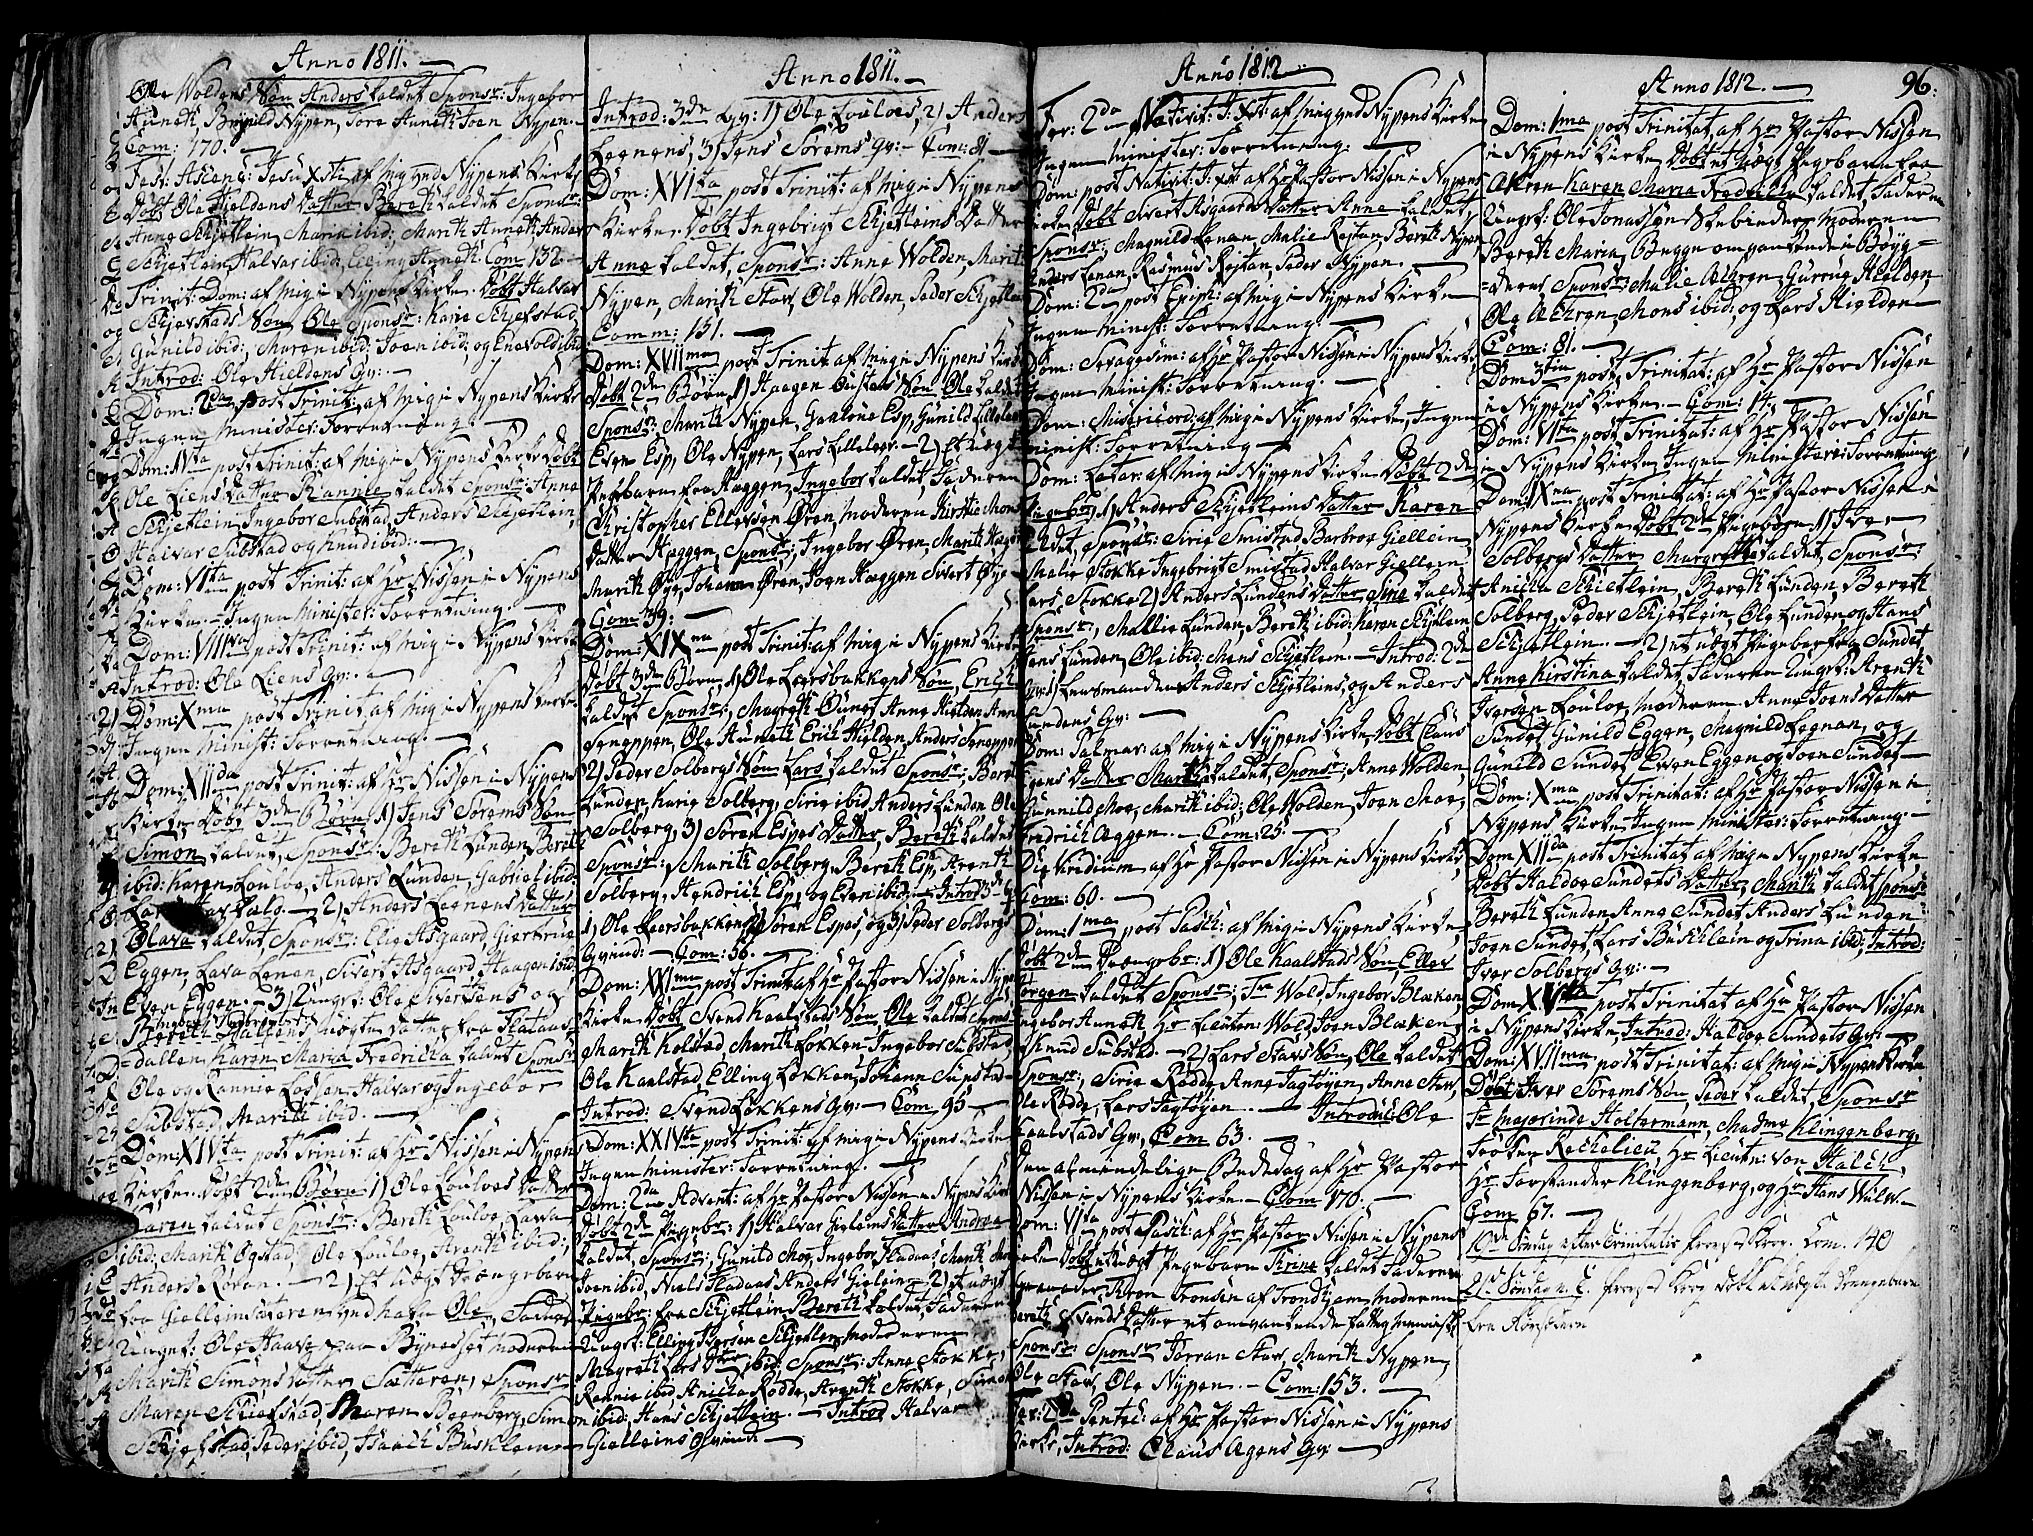 Anno 1811.
Ole Woldens Søn Anders kaldet Spons: Ingebor
Auneth, Bergild Nypen, Tore Auneth Joen Nypen.
Com: 170.
Fest: Ascens: Jesu Xsti af mig hos Nypens Kirke
Døbt Ole Hieldens Datter Bereth kaldet Spons:
Anne Schjetlein, Maria ibid, Marith Auneth Anders
Schjetlein, Halvar ibid, Elling Auneth. Com 132
Trinit: Dom: af mig i Nypens Kirke. Døbt Halvar
Schjefstads Søn Ole Spons: Karie Schjefstad
Gunild ibid: Maren ibid: Joen ibid: og Enevold ibid
Introd: Ole Hieldens Qv:
Dom: 2da post Trinit: af mig i Nypens Kirke
Ingen Minister: Forretning.
Dom: IVta post Trinit: af mig i Nypens Kirke Døbt
Ole Liens Datter Rannie kaldet Spons: Anne
Schjetlein, Ingebor Substad, Anders Schjetlein,
Halvar Substad og Knud ibid:
Dom: VIta post Trinit: af Hr Nissen i Nypens
Kirke. Ingen Minister: Forretning.
Dom: VIIIva post Trinit: af mig i Nypens Kirke
Introd: Ole Liens Qv:
Dom: Xma post Trinit: af mig i Nypens Kirke
Ingen Minist: Forretning.
Dom: XIIda post Trinit: af Hr Nissen i Nypens
Kirke Døbt 3de Børn 1) Jens Sørems Søn
Simon kaldet, Spons: Bereth Lunden, Bereth
ibid: Karen Louloe, Anders Lunden, Gabriel ibid:
2) Anders Leenens Datter
Olava kaldet, Spons: Elie Asgaard, Giertrue
Eggen, Lava Lenan, Sivert Asgaard, Haagen ibid
Even Eggen. 3) Ungk: Ole Sivertsens og
Bereth uægte Datter fra Flataas
dallen Karen Maria Fredricka kaldet Spons
Ole og Rannie Losen, Halvar og Ingebor
Substad, Marith ibid.
Dom: XIVta post Trinit: af Hr Nissen i Nypen
Kirke. Døbt 2de Børn 1) Ole Louloes Datter
Karen kaldet Spons: Bereth Louloe, Lava
ibid: Marith Øgstad, Ole Louloe, Arenth ibid:
Anders Loran. 2) Et uægt Drengebarn
fra Gielleinsæteren ved Navn Ole, Fader
Ungk: Ole Haave paa Bynesset Moderen
Marith Simons Datter Sætteren, Spons
Maren Schjefstad, Maren Beenberg, Simon
Schjefstad, Peder ibid, Isaach Busklein
Anno 1811.
Introd: 3de Qv: 1) Ole Louloes, 2) Anders
Leenens, 3) Jens Sørems Qv: Com: 81
Dom: XVIta post Trinit: af mig i Nypens
Kirke Døbt Ingebrigt Schjetleins Datter
Anne kaldet, Spons: Anne Wolden, Marith
Nypen, Marith Stav, Ole Wolden, Peder Schjetlein
Comm: 151.
Dom: XVIIma post Trinit af mig i Nypens Kirke
Døbt 2de Børn 1) Haagen Øustens Søn Ole kaldet
Spons: Marith Nypen, Gunild Lilleløe
Even Esp, Ole Nypen, Lars Lilleløe. 2) Et uægt
Pigebarn fra Hæggen, Ingebor kaldet, Faderen
Christopher Ellevsen Øren, Moderen Kirstie Mons
datter Hæggen, Spons: Ingebor Øren, Marith Hæggen
Marith Øye, Johan Øren, Joen Hæggen Sivert Øye
Com: 39:
Dom: XIXna post Trinit: af mig i Nypens Kirke
Døbt 3de Børn, 1) Ole Leersbakkens Søn, Erich
kaldet Spons: Magreth Anne Hielden, Anne
Seneppen, Ole Auneth Erich Hielden, Anders Seneppen
2) Peder Solbergs Søn Lars kaldet Spons: Bereth
Lunden, Karie Solberg, Sirie ibid Anders Lunden Ole
Solberg, 3) Søren Espes Datter, Bereth kaldet
Spons: Marith Solberg, Bereth Esp, Arenth
Solberg, Hendrich Esp, og Even ibid: Introd: 3de Qv
1) Ole Leersbakkens 2) Søren Espes, og 3) Peder Solbergs
Qvind: Com: 56.
Dom: XXIma post Trinit: af Hr Pastor Nissen i Nypens
Kirke Døbt Svend Kaalstads Søn Ole kaldet Spons:
Marith Kolstad, Marith Løkken, Ingebor Substad,
Ole Kaalstad, Elling Løkken, Johann Supstad
Introd: Svend Løkkens Qv: Com 95
Dom: XXIVta post Trinit: af mig i Nypens Kirke
Ingen Minister: Forretning.
Dom: 2da Advent: af Hr Pastor Nissen i Nypens Kirke
Døbt 2de Pigebr: 1) Halvar Gielleins Datter Andrea
kaldet, Spons: Gunild Moe, Ingebor Fladaas, Marith
Joen ibid, Niels Fladaas Anders Giellein 2) Et uægt
Pigebr: fra Schjetlein Bereth kaldet, Faderen
Ungk: Elling Iversen Schjetlein, Moderen
Magreth Lars Dtr ibid: Spons: Anne Stokke,
Rannie ibid, Anicka Rødde, Arenth Stokke, Simon
ibid: Hans Schjetlein. Introd Halvar
Gielleins Qvind:
Anno 1812.
Fer: 2da Nativit: J: Xsti af mig ved Nypens Kirke
Ingen Minister: Forretning.
Dom: post Nativit: J: Xsti af Hr Pastor Nissen i Nypens
Kirke Døbt Sivert Asgaards Datter Anne kaldet
Spons: Magnild Lenan, Malie Rostan Bereth Nypen
Anders Lenan, Rasmus Rostan, Peder Nypen.
Dom: 2da post Epiph: af mig i Nypens Kirke
Ingen Minist: Forretning.
Dom: Sexagesim: af Hr Pastor Nissen i Nypens Kirke
Ingen Minist: Forretning.
Dom: Misericord: af mig i Nypens Kirke, Ingen
Minist: Forretning
Dom: Letar: af mig i Nypens Kirke Døbt 2de
Pigebørn 1) Anders Schjetleins Datter Karen
kaldet, Spons: Sirie Smistad, Barbroe Giellein,
Malie Stokke Ingebrigt Smistad Halvar Giellein
Lars Stokke 2) Anders Lundens Datter Sirie kaldet
Spons: Mallie Lunden, Bereth ibid: Karen Schjetlein
Jens Lunden, Ole ibid: Mons Schjetlein. Introd: 2de
Qv: 1) Leensmanden Anders Schjetleins, og Anders
Lundens Qv:
Dom: Palmar: af mig i Nypens Kirke, Døbt Claus
Agens Datter Marith kaldet, Spons: Anne Wolden,
Gunnild Moe, Marith ibid: Ole Wolden, Joen Moe,
Fredrich Aggen. Com: 25.
Die Viridium af Hr Pastor Nissen i Nypens Kirke,
Com: 60.
Dom: 1ma post Pasch: af mig i Nypens Kirke
Døbt 2de Drengebr: 1) Ole Kaalstads Søn, Eller
Jørgen kaldet Spons: Fru Wold Ingebor Blæken,
Ingebor Auneth Hr Lieuten: Wold Joen Blæken
Knud Substad. 2) Lars Stavs Søn, Ole kaldet
Spons: Sirie Rødde, Anne Jagtøyen, Anne Stav,
Ole Rødde, Lars Jagtøyen. Introd: Ole
Kaalstads Qv: Com 63.
Den almindelige Bededag af Hr Pastor
Nissen i Nypens Kirke. Com 170.
Dom: VIta post Pasch: af Hr Pastor Nissen i Nypens
Kirke Døbt et uægt Pigebarn Trine kaldet Faderen
Tronsen af Trondhjem, Moderen
Bereth Svends Datter et omvankende fattig Menniske
Spons: Spons: Jorran Stav, Marith Nypen,
Ole Stav, Ole Nypen. Com: 153.
Fer: 2da Pentec: af Hr Pastor Nissen i Nypens
Kirke, Introd: Claus Agens Qv:
Anno 1812.
96.
Dom: 1ma post Trinitat, af Hr Pastor Nissen
i Nypens Kirke Døbt et uægt Pigebarn fra
Akren Karen Maria Fredricka kaldet, Faderen
Ungk: Ole Jonassen Moderen
Bereth Maria Bugge omgaaende i Bøyg=
=deren, Spons: Malie Ækren, Gurrue Hielden
Ole Ækren, Mons ibid: og Lars Hielden
Com: 81.
Dom 3tia post Trinitat: af Hr Pastor Nissen
i Nypens Kirke. Com: 14.
Dom: VIta post Trinitat: af Hr Pastor Nissen
i Nypens Kirke, Ingen Ministeri: Forretning
Dom: IXna post Trinitat: af Hr Pastor Nissen i
Nypens Kirke Døbt 2de Pigebørn 1) Iver
Solbergs Datter Margrethe kaldet, Spons:
Anicka Schjetlein, Bereth Lunden, Bereth
Solberg, Peder Schjetlein, Ole Lunden og Hans
Schjetlein. 2) et uægt Pigebr fra Sundet
Anne Kirstina kaldet, Faderen Ungk: Arenth
Iversen Louloe, Moderen Anne Joens Datter
Sundet Gunild Eggen, Magnild Legnan, og
Gunild Sundet Even Eggen og Joen Sundet
Dom: Xma post Trinitat: af Hr Pastor Nissen i
Nypens Kirke, Ingen Minister: Forretning.
Dom XIIda post Trinitat af mig i Nypens Kirke
Døbt Haldoe Sundets Datter, Marith kaldet Spons:
Bereth Lunden Anne Sundet, Anders Lunden
Joen Sundet, Lars Busklein og Trina ibid; Introd:
Iver Solbergs Qv:
Dom XVta post Trinitat af Hr Pastor Nissen
i Nypens Kirke, Introd: Haldoe Sundets Qv:
Dom: XVIIma post Trinitat: af mig i Nypens Kirke
Døbt Iver Sørems Søn, Peder kaldet, Spons:
Fr Majorinde Holtermann, Madme Klingenberg,
Frøken Rechelieu, Hr Lieutn: von Halch,
Hr Forstander Klingenberg, og Hr Hans Wulv.
Com 67.
19de Søndag efter Trinitatis Provst Krog. Com. 140
21de Søndag e. T. Provst Krog Døbt et uægte Drengebarn